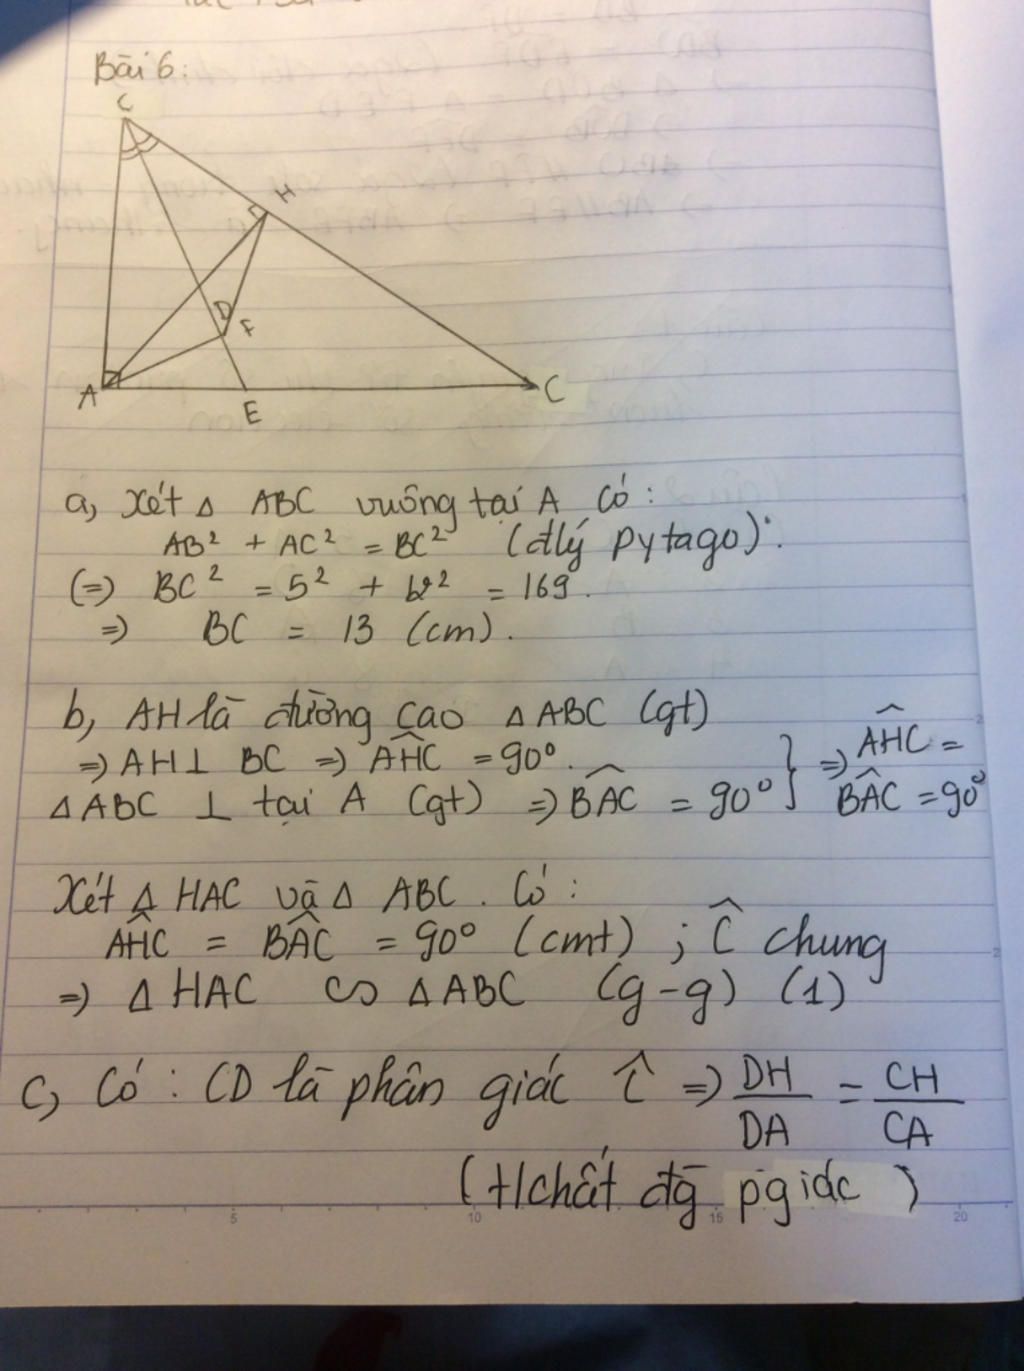 Bài 6:
C
H
D
F
A
E
C
a, Xét Δ ABC vuông tại A có:
AB² + AC² = BC² (đlý pytago).
(=) BC² = 5² + 12² = 169.
=) BC = 13 (cm).
b, AH là đường cao Δ ABC (gt)
=) AH ⊥ BC =) AĤC = 90°. } =) AĤC =
Δ ABC ⊥ tại A (gt) =) BÂC = 90° } BÂC = 90°
Xét Δ HAC và Δ ABC. Có:
AĤC = BÂC = 90° (cmt) ; Ĉ chung
=) Δ HAC ∽ Δ ABC (g-g) (1)
C, Có: CD là phân giác Ĉ =) DH/DA = CH/CA
(t/chất đg pgiác)
5 10 15 20